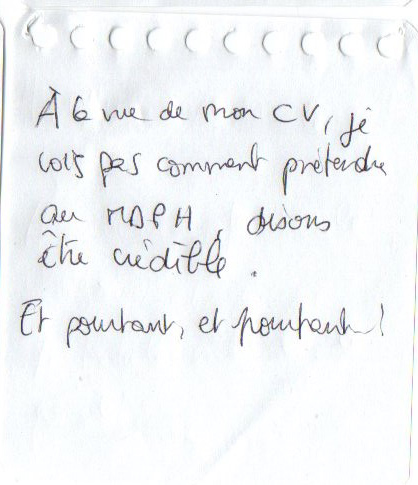 À la vue de mon CV, je
vois pas comment prétendre
au MDPH, disons
être crédible.
Et pourtant, et pourtant !